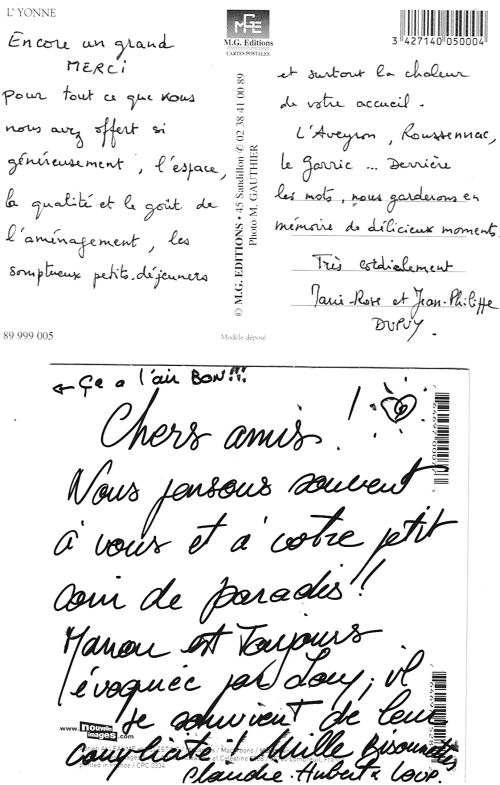 L'YONNE
Encore un grand
MERCI
pour tout ce que vous
nous avez offert si
généreusement, l'espace,
la qualité et le goût de
l'aménagement, les
somptueux petits-déjeuners
89 999 005
MGE
M.G. Editions
CARTES POSTALES
© M.G. EDITIONS • 45 Sandillon ✆ 02 38 41 00 89
Photo M. GAUTHIER
Modèle déposé
3 427140 050004
et surtout la chaleur
de votre accueil.
L'Aveyron, Roussennac,
le Garric ... Derrière
les mots, nous garderons en
mémoire de délicieux moments.
Très cordialement
Marie-Rose et Jean-Philippe
DUPUY.
← Ça a l'air BON!!!
Chers amis !
Nous pensons souvent
à vous et à votre petit
coin de paradis!!
Manon est Toujours
évoquée par Lou, il
se souvient de leur
complicité! Mille Bisounettes
Claudie. Hubert & Loup.
www.nouvelles
images.com
printed in France / CPC 0334